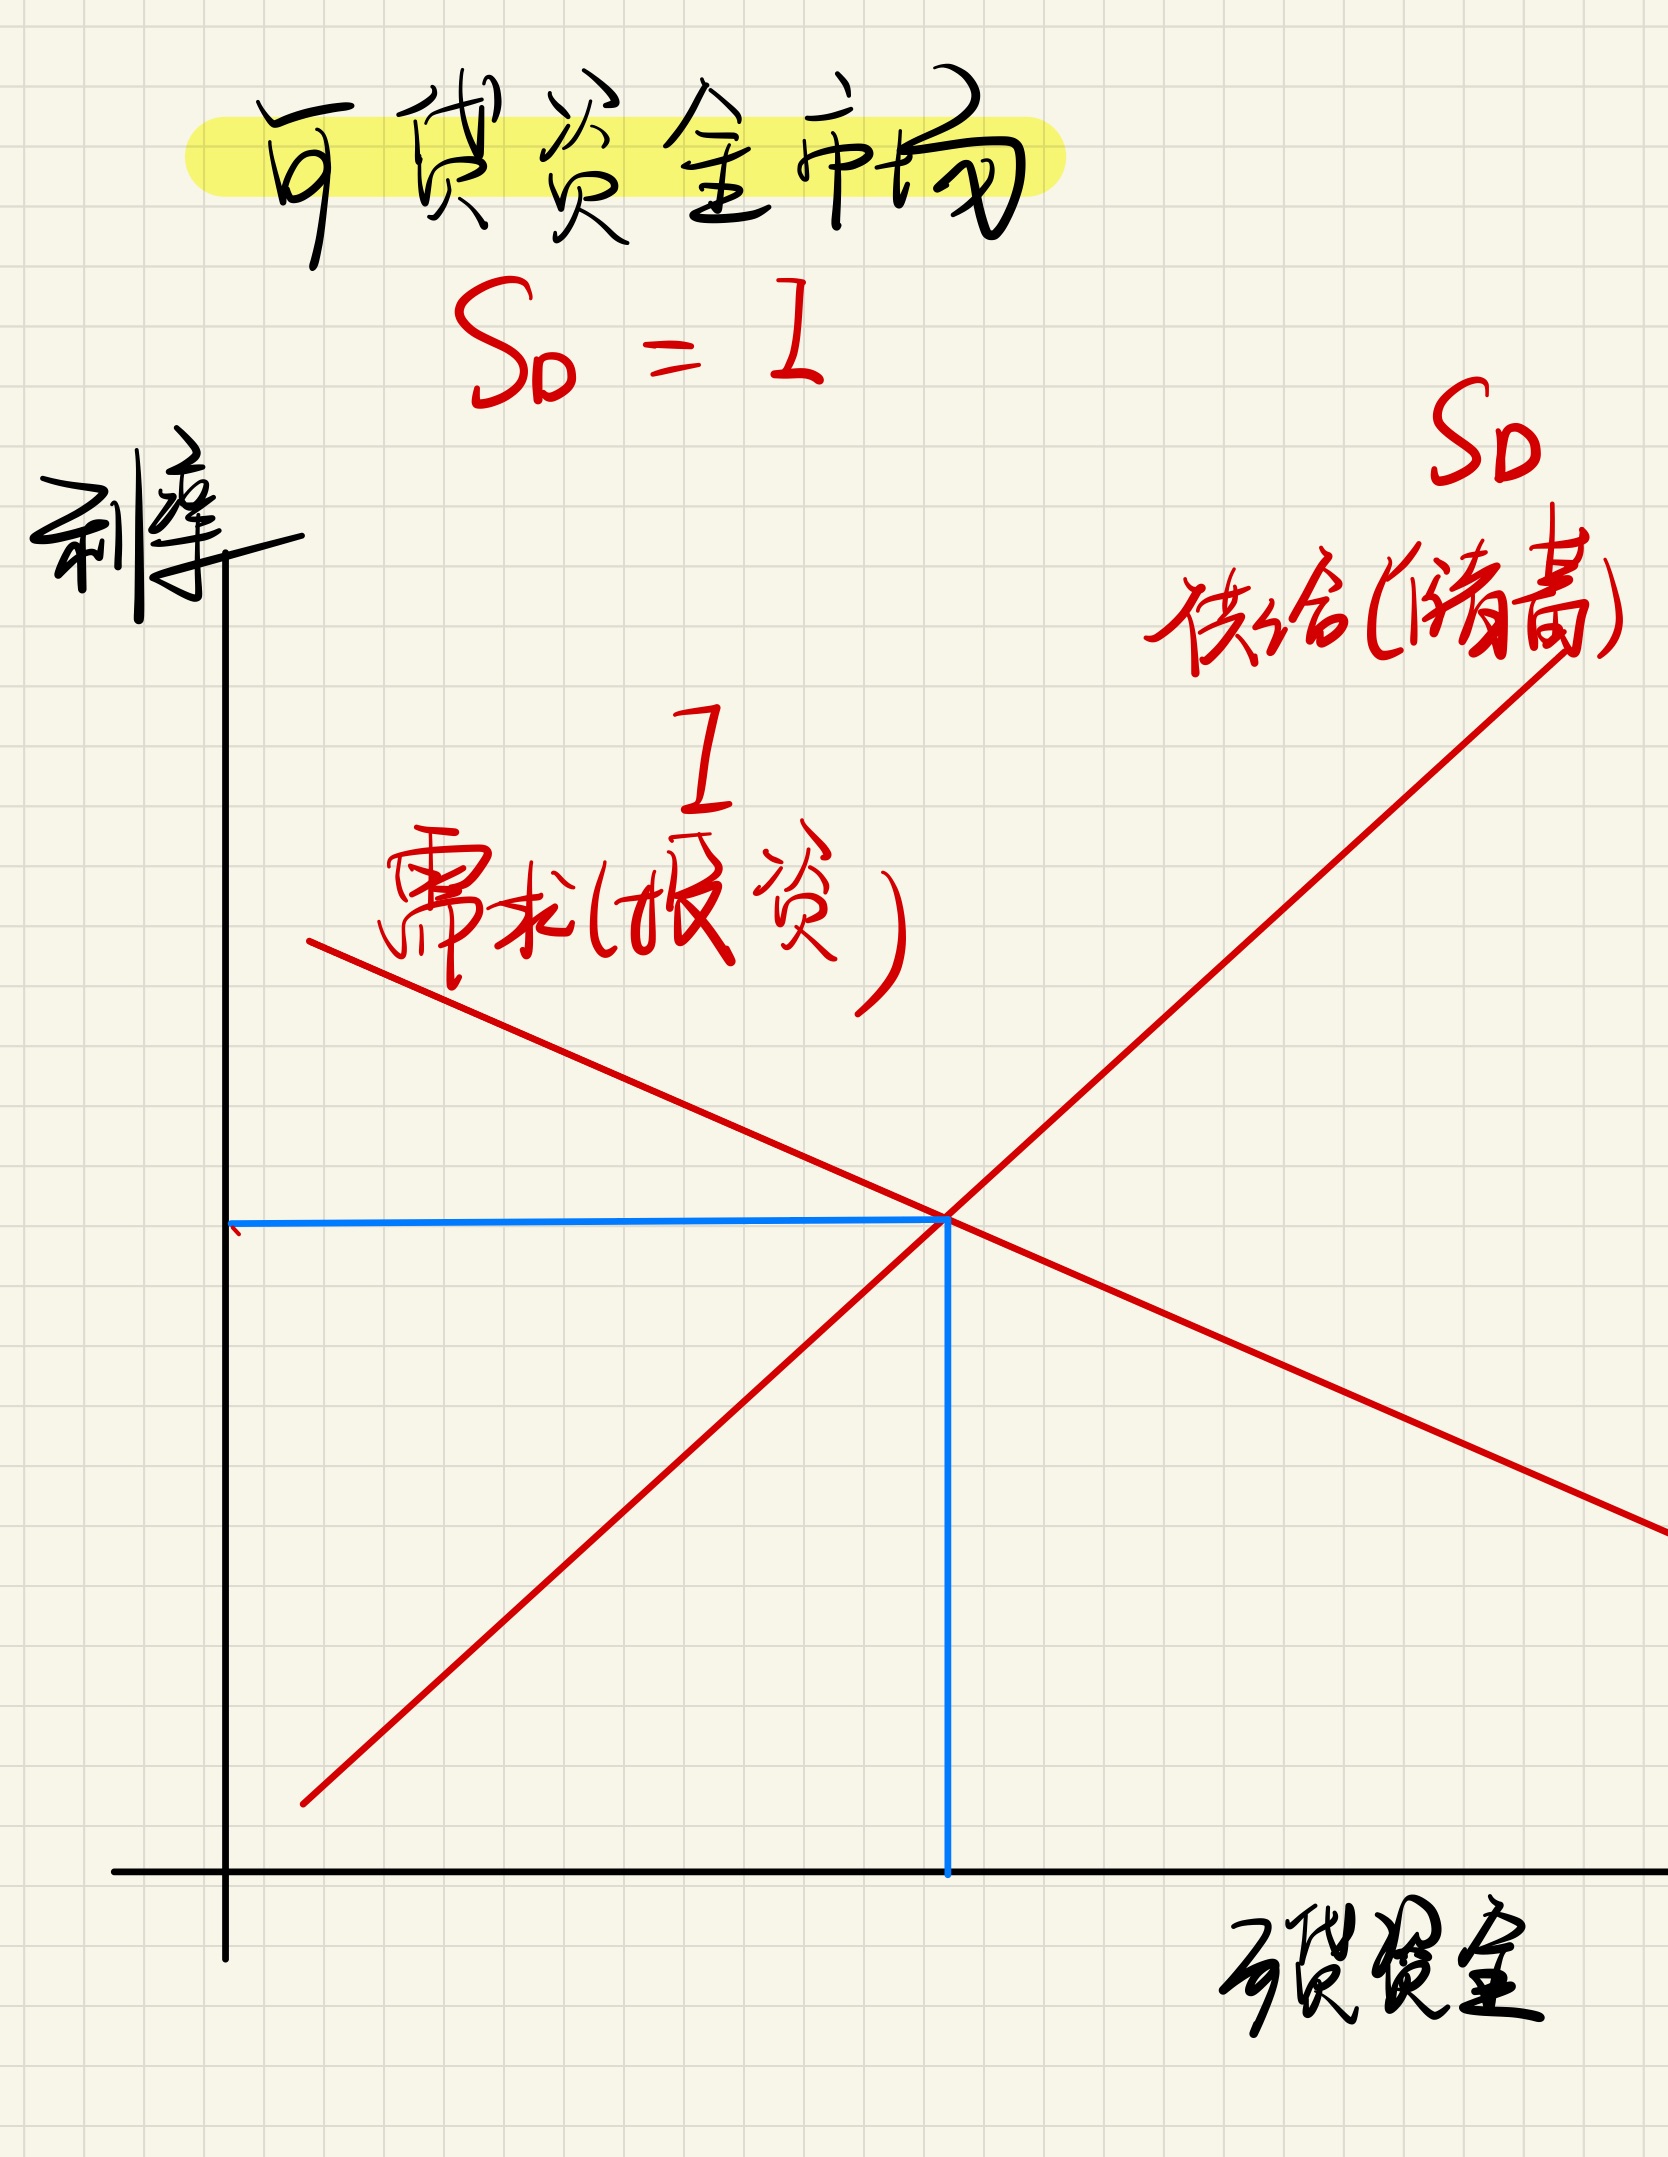 可贷资金市场
SD = I
利率
SD
供给(储蓄)
I
需求(投资)
可贷资金